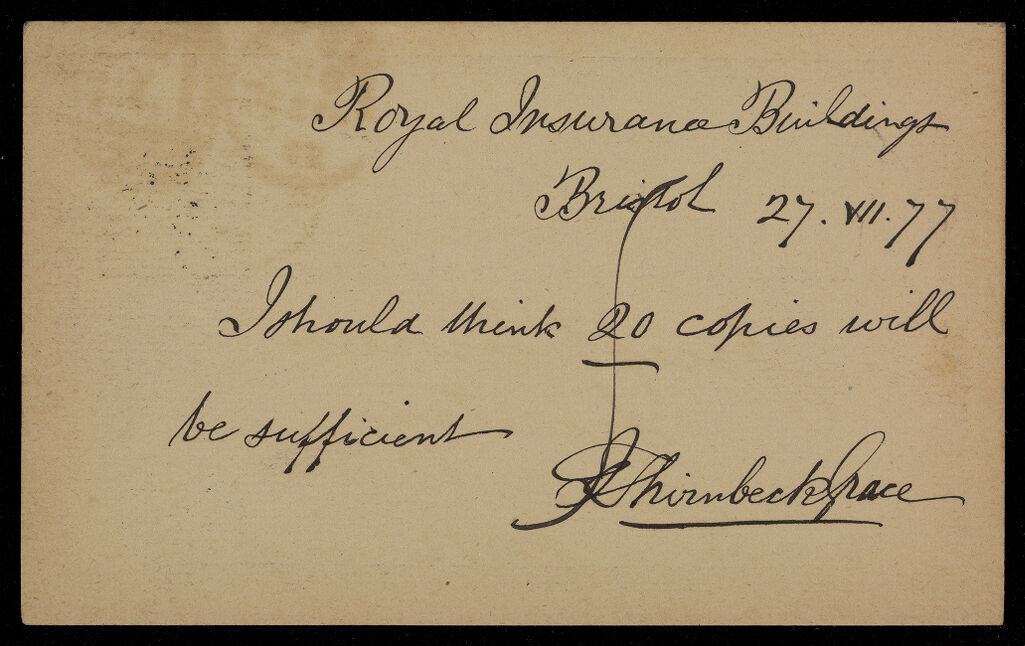 Royal Insurance Buildings
Bristol 27. VII. 77
I should think 20 copies will
be sufficient
J Thirnbeck Grace